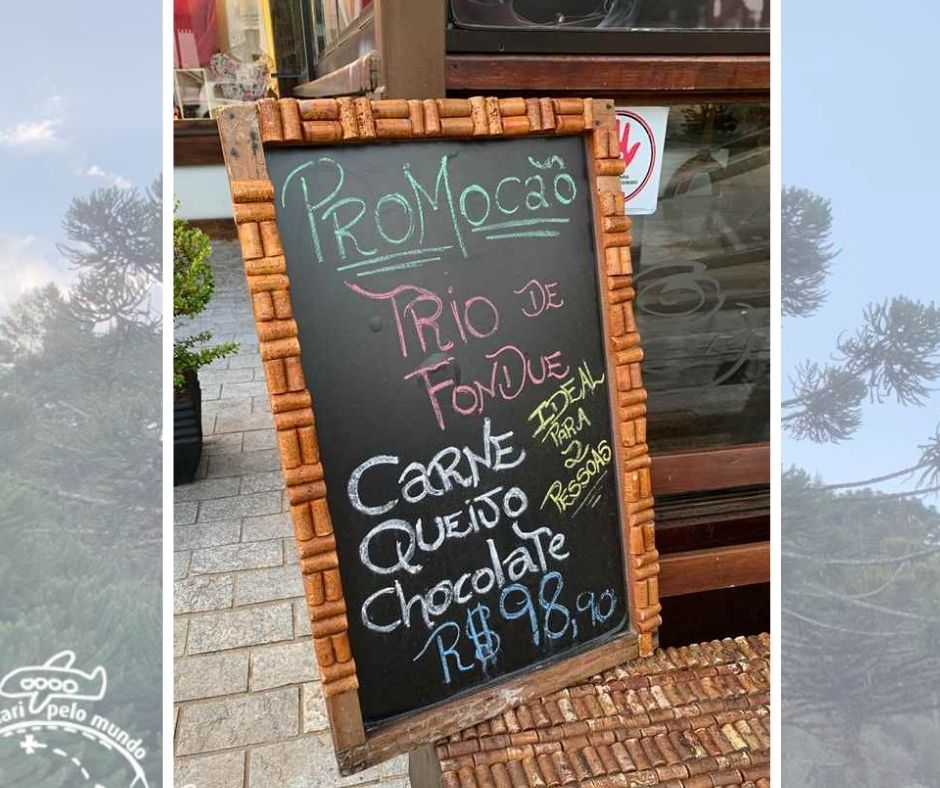 PROMOCÃO
TRIO DE
FONDUE
IDEAL
PARA
2
PESSOAS
CARNE
QUEIJO
CHOCOLATE
R$98,90
ari pelo mundo